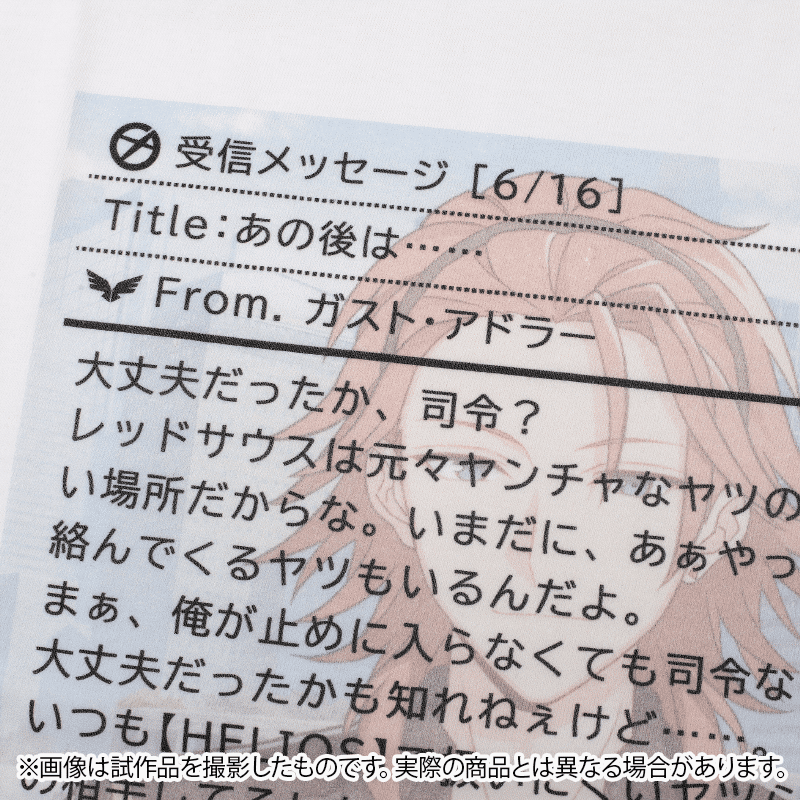 受信メッセージ [6/16]
Title:あの後は……
From. ガスト・アドラー
大丈夫だったか、司令?
レッドサウスは元々ヤンチャなヤツの
い場所だからな。いまだに、あぁやっ
絡んでくるヤツもいるんだよ。
まぁ、俺が止めに入らなくても司令な
大丈夫だったかも知れねぇけど……。
いつも【HELIOS】
※画像は試作品を撮影したものです。実際の商品とは異なる場合があります。